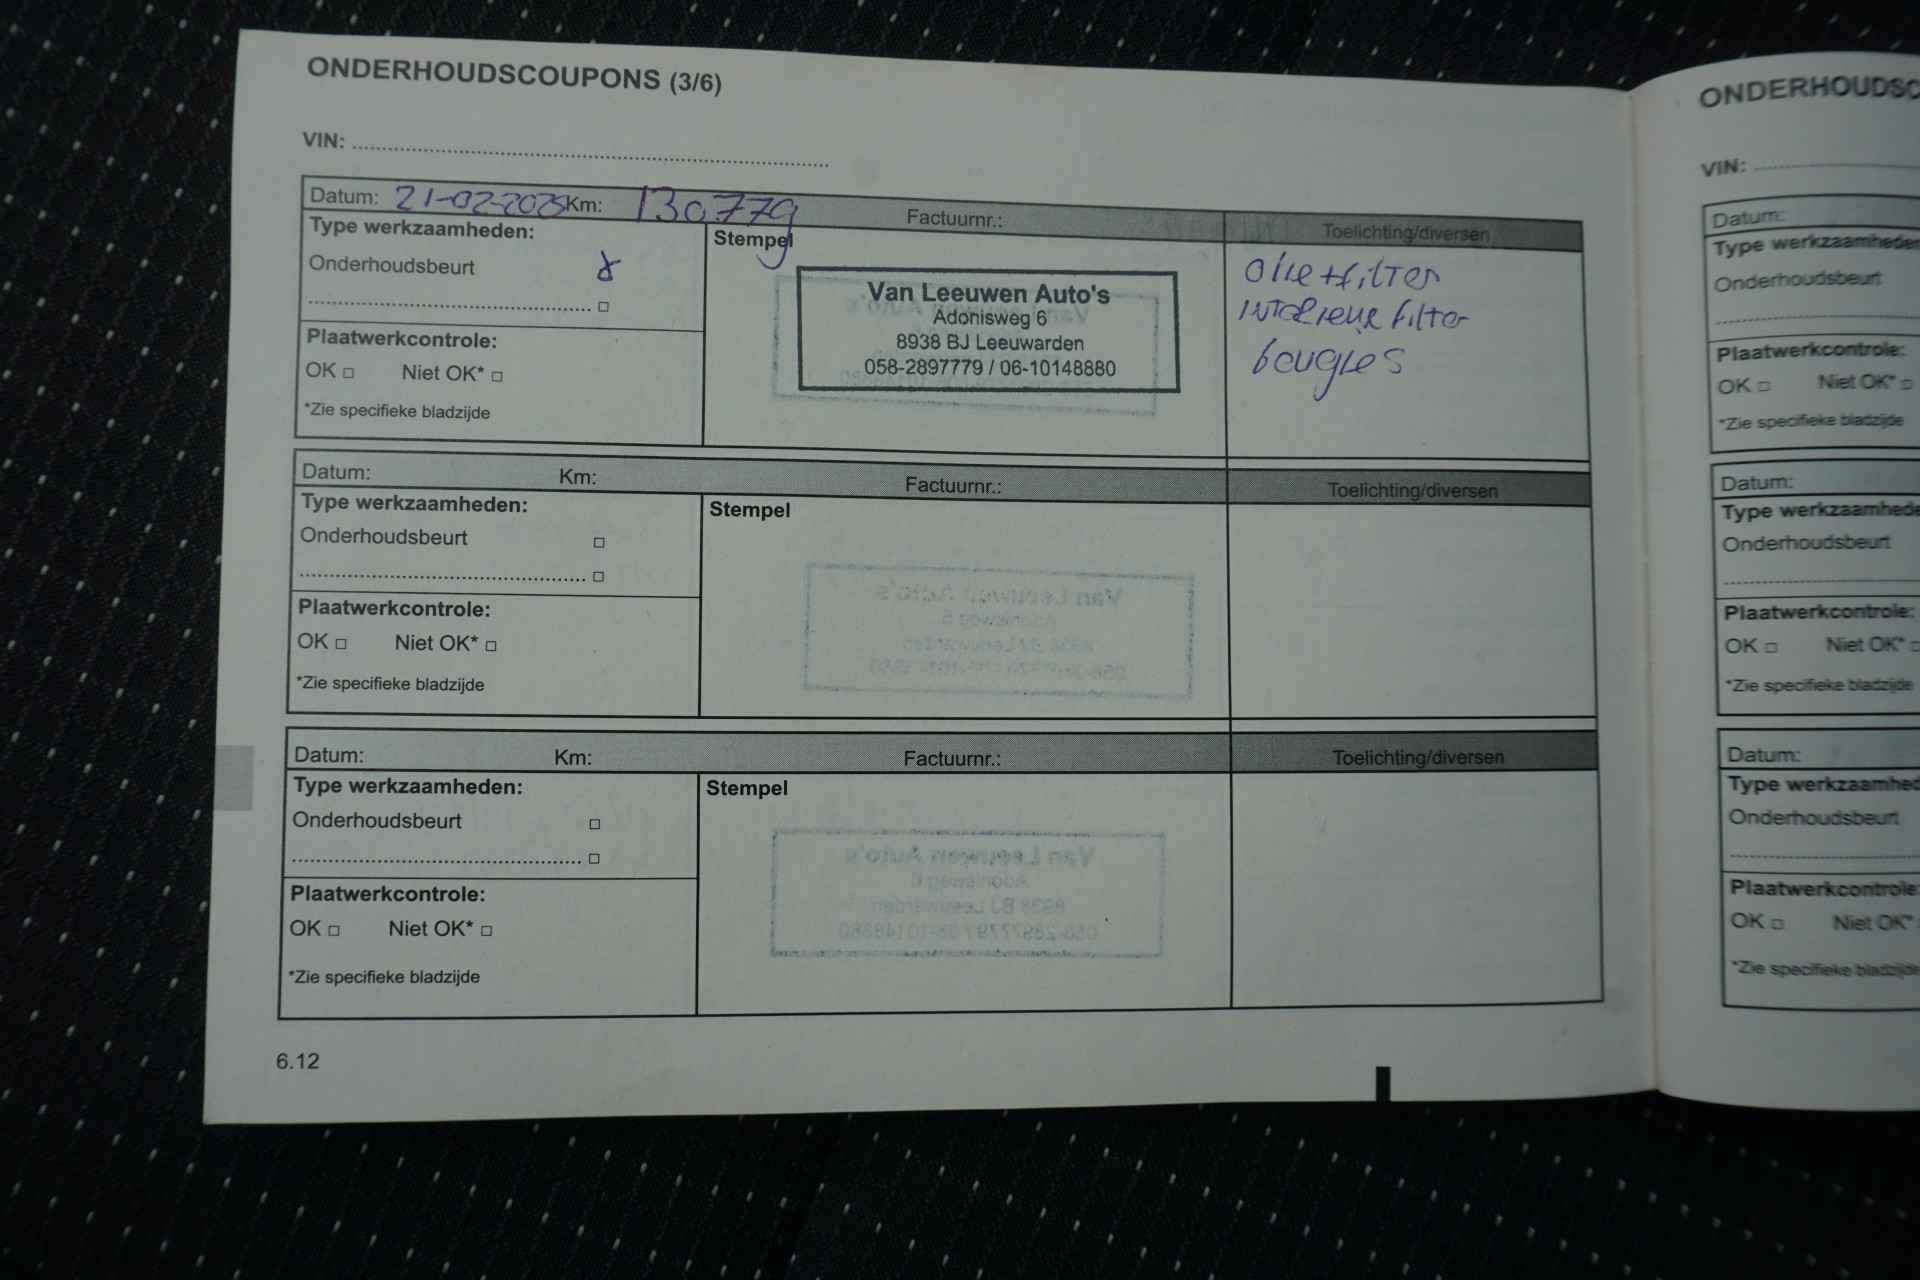 ONDERHOUDSCOUPONS (3/6)
VIN:
Datum: 21-02-2025 Km: 130779 Factuurnr.: Toelichting/diversen
Type werkzaamheden:
Stempel
Onderhoudsbeurt
Plaatwerkcontrole:
OK □ Niet OK* □
*Zie specifieke bladzijde
Van Leeuwen Auto's
Adonisweg 6
8938 BJ Leeuwarden
058-2897779 / 06-10148880
olie+filter
interieur filter
bougies
Datum: Km: Factuurnr.: Toelichting/diversen
Type werkzaamheden:
Stempel
Onderhoudsbeurt □
Plaatwerkcontrole:
OK □ Niet OK* □
*Zie specifieke bladzijde
Datum: Km: Factuurnr.: Toelichting/diversen
Type werkzaamheden:
Stempel
Onderhoudsbeurt □
Plaatwerkcontrole:
OK □ Niet OK* □
*Zie specifieke bladzijde
6.12
ONDERHOUDSC
VIN:
Datum:
Type werkzaamheden
Onderhoudsbeurt
Plaatwerkcontrole:
OK □ Niet OK* □
*Zie specifieke bladzijde
Datum:
Type werkzaamhede
Onderhoudsbeurt
Plaatwerkcontrole:
OK □ Niet OK* □
*Zie specifieke bladzijde
Datum:
Type werkzaamhed
Onderhoudsbeurt
Plaatwerkcontrole
OK □ Niet OK*
*Zie specifieke bladzijde